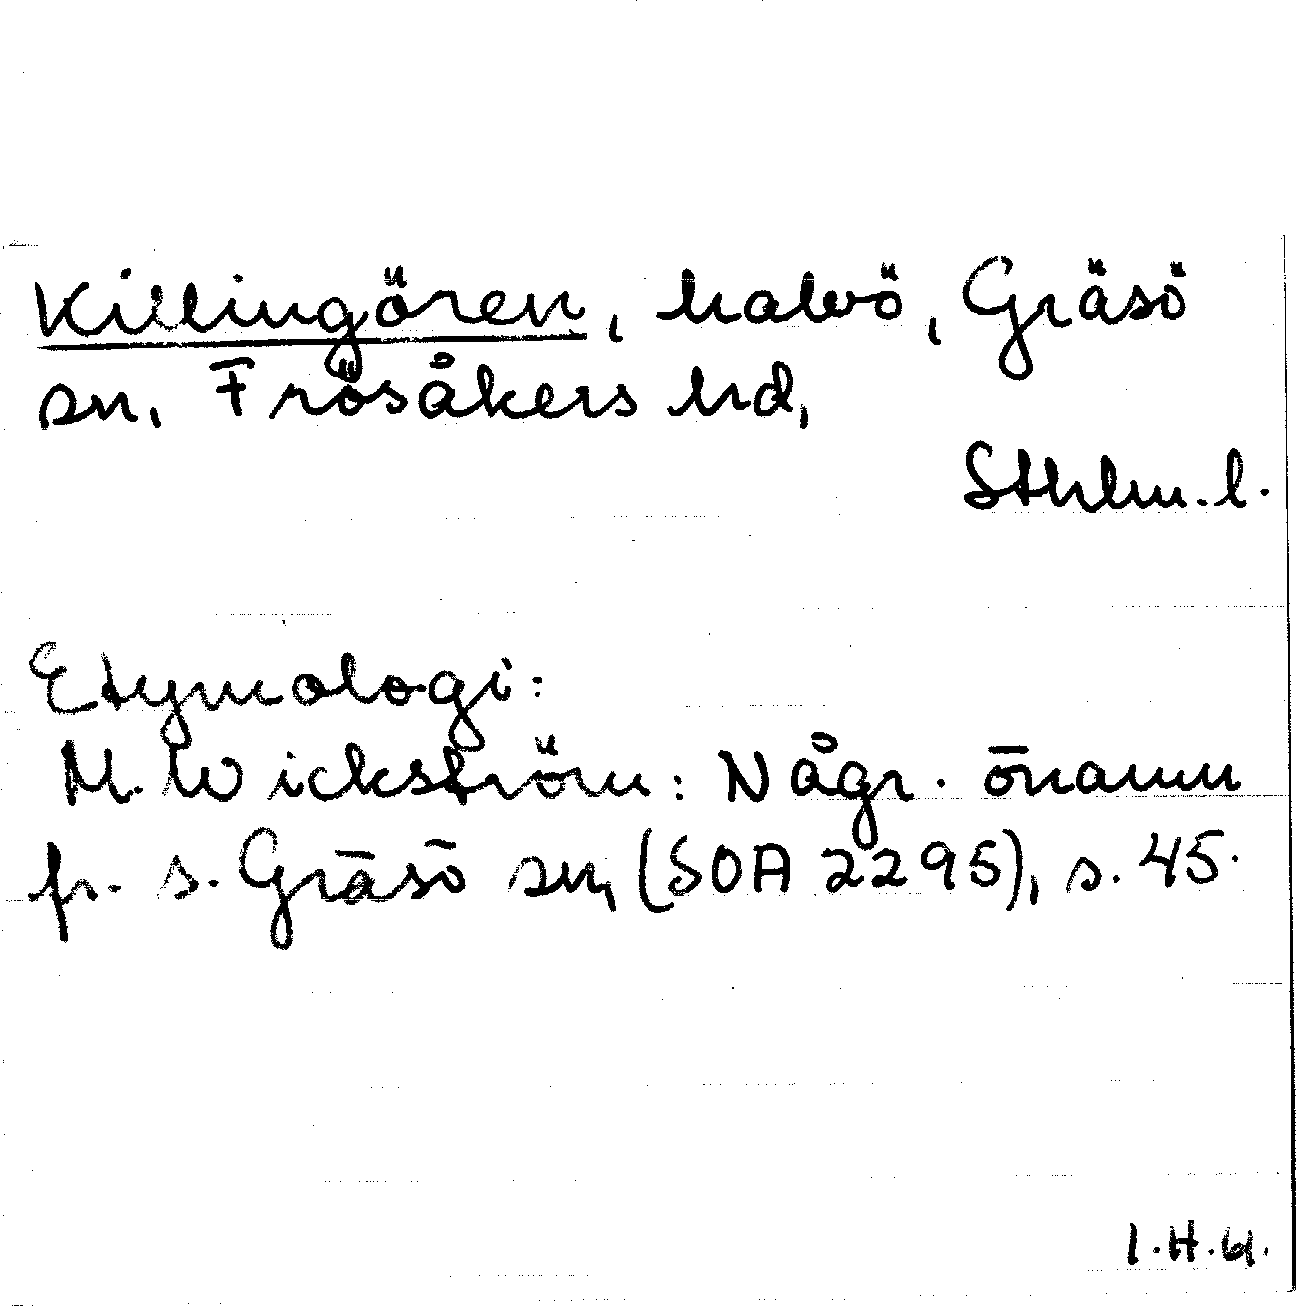 Killingören, halvö, Gräsö
sn, Frösåkers hd,
Sthlm.l.
Etymologi:
M. Wickström: Någr. önamn
fr. s. Gräsö sn, (SOA 2295), s. 45.
I.H.61.